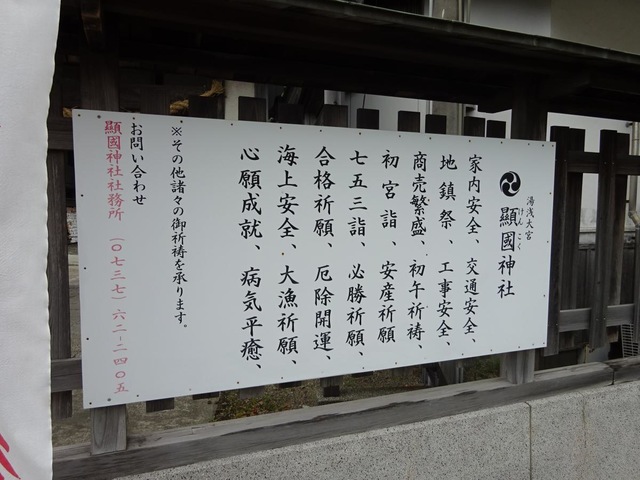 湯浅大宮
顯國神社
けんこく
家内安全、交通安全、
地鎮祭、工事安全、
商売繁盛、初午祈祷、
初宮詣、安産祈願
七五三詣 必勝祈願、
合格祈願、厄除開運、
海上安全、大漁祈願、
心願成就、病気平癒、
※その他諸々の御祈祷を承ります。
お問い合わせ
顯國神社社務所 (〇七三七)六二-二四〇五